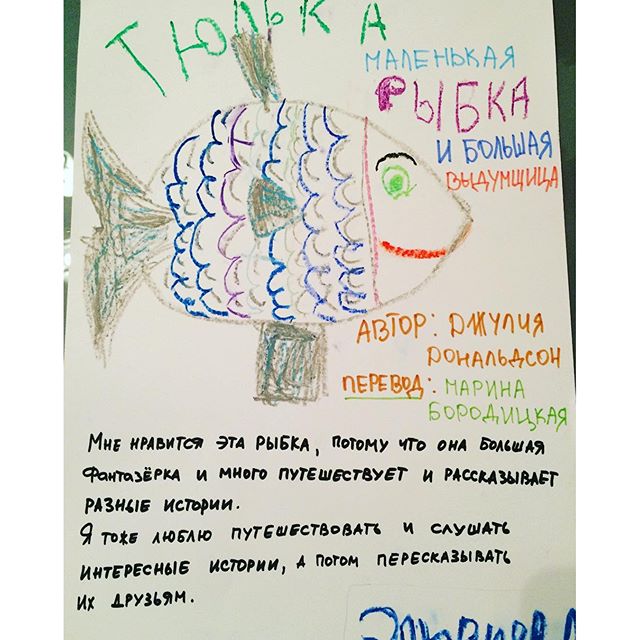 ТЮЛЬКА
МАЛЕНЬКАЯ
РЫБКА
И БОЛЬШАЯ
ВЫДУМЩИЦА
АВТОР: ДЖУЛИЯ
ДОНАЛЬДСОН
ПЕРЕВОД: МАРИНА
БОРОДИЦКАЯ
МНЕ НРАВИТСЯ ЭТА РЫБКА, ПОТОМУ ЧТО ОНА БОЛЬШАЯ
ФАНТАЗЁРКА И МНОГО ПУТЕШЕСТВУЕТ И РАССКАЗЫВАЕТ
РАЗНЫЕ ИСТОРИИ.
Я ТОЖЕ ЛЮБЛЮ ПУТЕШЕСТВОВАТЬ И СЛУШАТЬ
ИНТЕРЕСНЫЕ ИСТОРИИ, А ПОТОМ ПЕРЕСКАЗЫВАТЬ
ИХ ДРУЗЬЯМ.